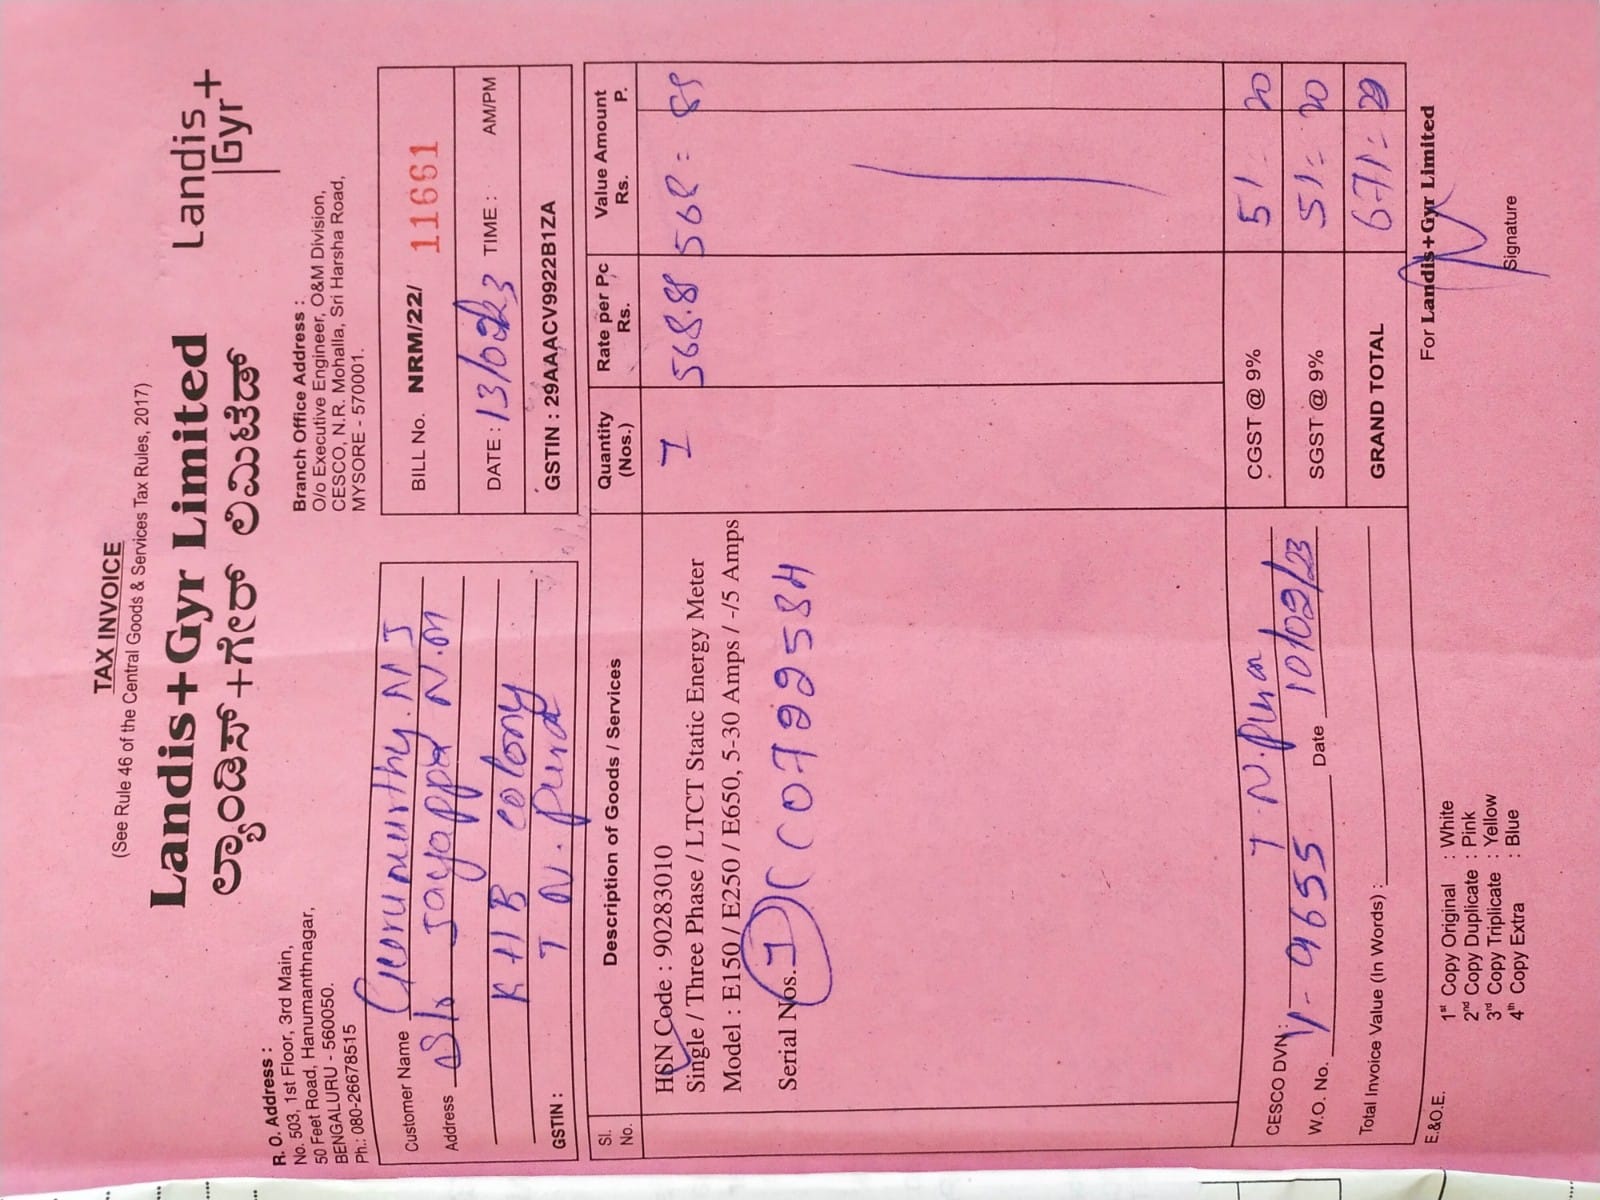 TAX INVOICE
(See Rule 46 of the Central Goods & Services Tax Rules, 2017)
Landis+Gyr Limited
ಲ್ಯಾಂಡಿಸ್+ಗೇರ್ ಲಿಮಿಟೆಡ್
Landis
Gyr+
R. O. Address :
No. 503, 1st Floor, 3rd Main,
50 Feet Road, Hanumanthnagar,
BENGALURU - 5600050.
Ph.: 080-26678515
Branch Office Address :
O/o Executive Engineer, O&M Division,
CESCO, N.R. Mohalla, Sri Harsha Road,
MYSORE - 570001.
Customer Name Gurumurthy. N J
Address S/o Jayappa N.M
K H B colony
T N. Pura
GSTIN :
BILL No. NRM/22/ 11661
DATE : 13/02/23 TIME : AM/PM
GSTIN : 29AAACV9922B1ZA
Sl. No. Description of Goods / Services Quantity (Nos.) Rate per Pc Rs. Value Amount Rs. P.
HSN Code : 90283010 1 568.88 568 = 88
Single / Three Phase / LTCT Static Energy Meter
Model : E150 / E250 / E650, 5-30 Amps / -/5 Amps
Serial Nos.
CESCO DVN: T N. Pura
W.O. No. Date 10/02/23
Total Invoice Value (In Words) :
CGST @ 9% 51 = 20
SGST @ 9% 51 = 20
GRAND TOTAL 671 = 29
E.&O.E.
1st Copy Original : White
2nd Copy Duplicate : Pink
3rd Copy Triplicate : Yellow
4th Copy Extra : Blue
For Landis+Gyr Limited
Signature